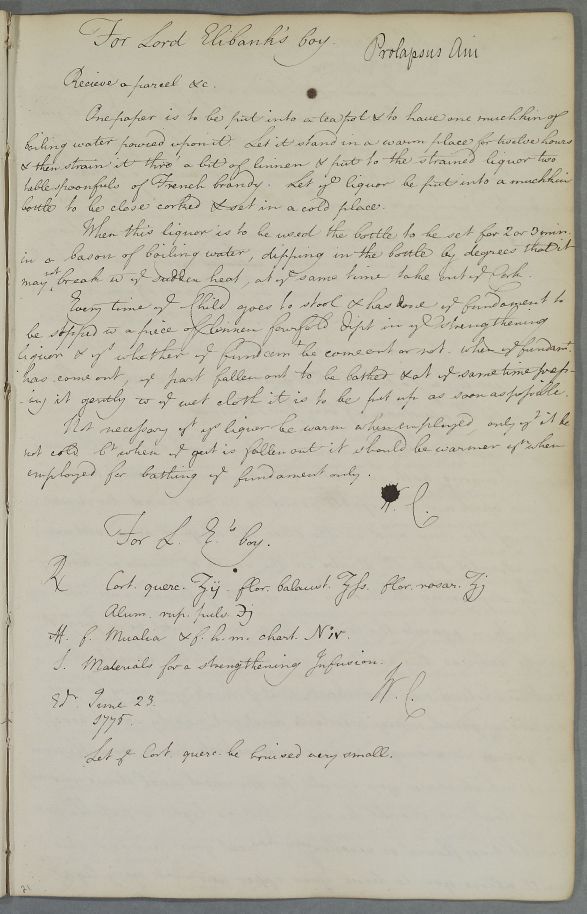 For Lord Elibank's boy.
Prolapsus Ani
Recieve a parcel &c.
One paper is to be put into a tea pot & to have one muchkin of
boiling water poured upon it. Let it stand in a warm place for twelve hours
& then strain it thro' a bit of linnen & put to the strained liquor two
table spoonfuls of French brandy. Let ye liquor be put into a muchkin
bottle to be close corked & set in a cold place.
When this liquor is to be used the bottle to be set for 2 or 3 min.
in a bason of boiling water, dipping in the bottle by degrees that it
may not break w ye sudden heat, at ye same time take out ye Cork.
Every time ye Child goes to stool & has done ye fundament to
be sopped w a piece of linnen fourfold dipt in ye strengthening
liquor & ys whether ye fundamt be come out or not. When ye fundamt.
has come out, ye part fallen out to be bathed & at ye same time press-
-ing it gently w ye wet cloth it is to be put up as soon as possible.
Not necessary yt ys liquor be warm when employed, only yt it be
not cold bt when ye gut is fallen out it should be warmer yn when
employed for bathing ye fundament only.
W. C.
For L. E.'s boy.
℞ Cort. querc. ʒij. flor. balaust. ʒfs. flor. rosar. ʒj
Alum. rup. pulv. ℈j
M. f. Mualia & f. h. m. chart. No iv.
S. Materials for a strengthening Infusion.
Edr. June 23.
1775.
W. C.
Let ye Cort. querc. be bruised very small.
21